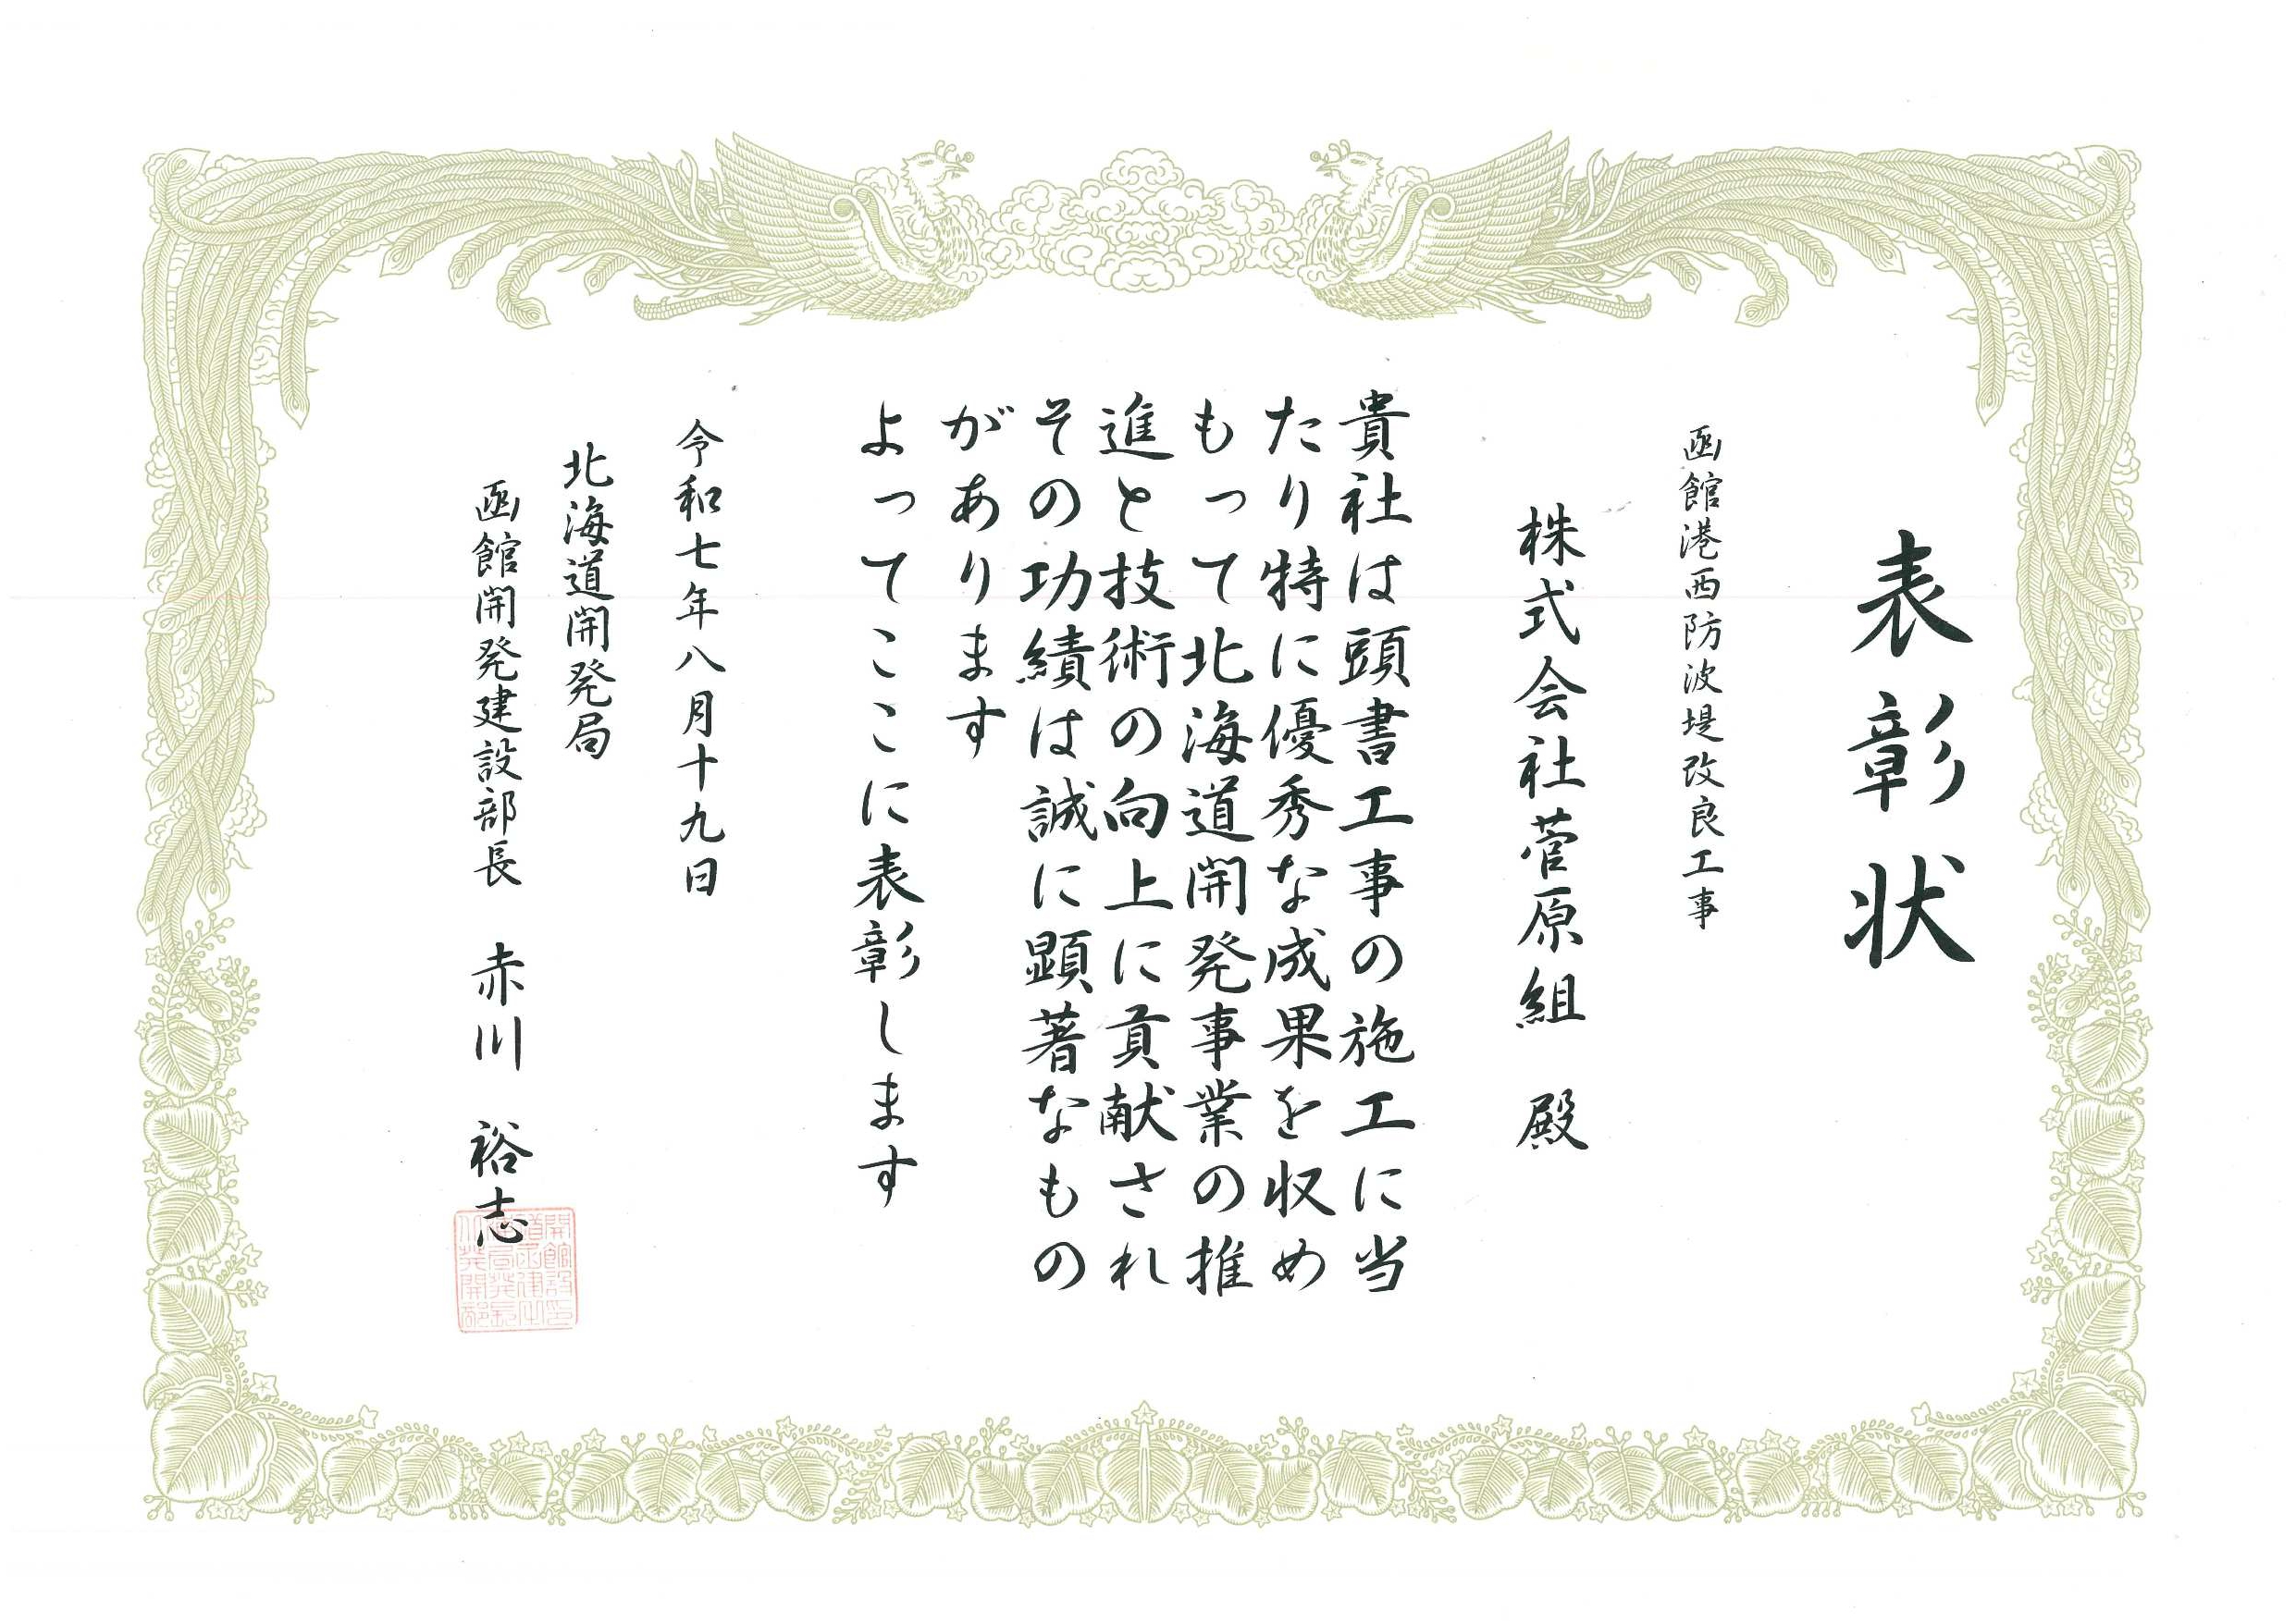 表彰状
函館港西防波堤改良工事
株式会社菅原組 殿
貴社は頭書工事の施工に当
たり特に優秀な成果を収め
もって北海道開発事業の推
進と技術の向上に貢献され
その功績は誠に顕著なもの
があります
よってここに表彰します
令和七年八月十九日
北海道開発局
函館開発建設部長 赤川 裕志